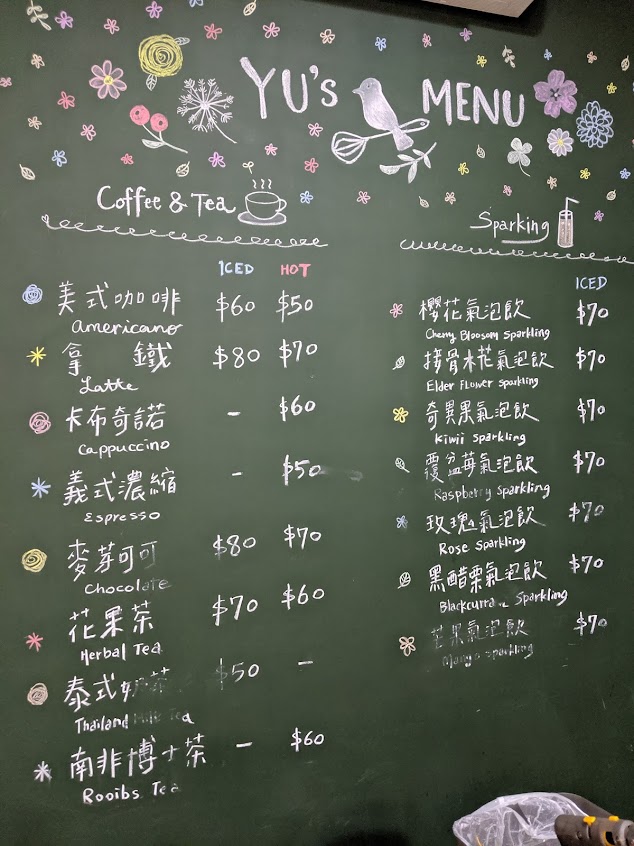 YU's MENU
Coffee & Tea
ICED HOT
美式咖啡 $60 $50
americano
拿 鐵 $80 $70
Latte
卡布奇諾 - $60
Cappuccino
義式濃縮 - $50
Espresso
麥芽可可 $80 $70
Chocolate
花果茶 $70 $60
Herbal Tea
泰式奶茶 $50 -
Thailand Milk Tea
南非博士茶 - $60
Rooibs Tea
Sparking
ICED
櫻花氣泡飲 $70
Cherry Bloosom Sparkling
接骨木花氣泡飲 $70
Elder Flower Sparkling
奇異果氣泡飲 $70
Kiwii Sparkling
覆盆莓氣泡飲 $70
Raspberry Sparkling
玫瑰氣泡飲 $70
Rose Sparkling
黑醋栗氣泡飲 $70
Sparkling
芒果氣泡飲 $70
Mango Sparkling